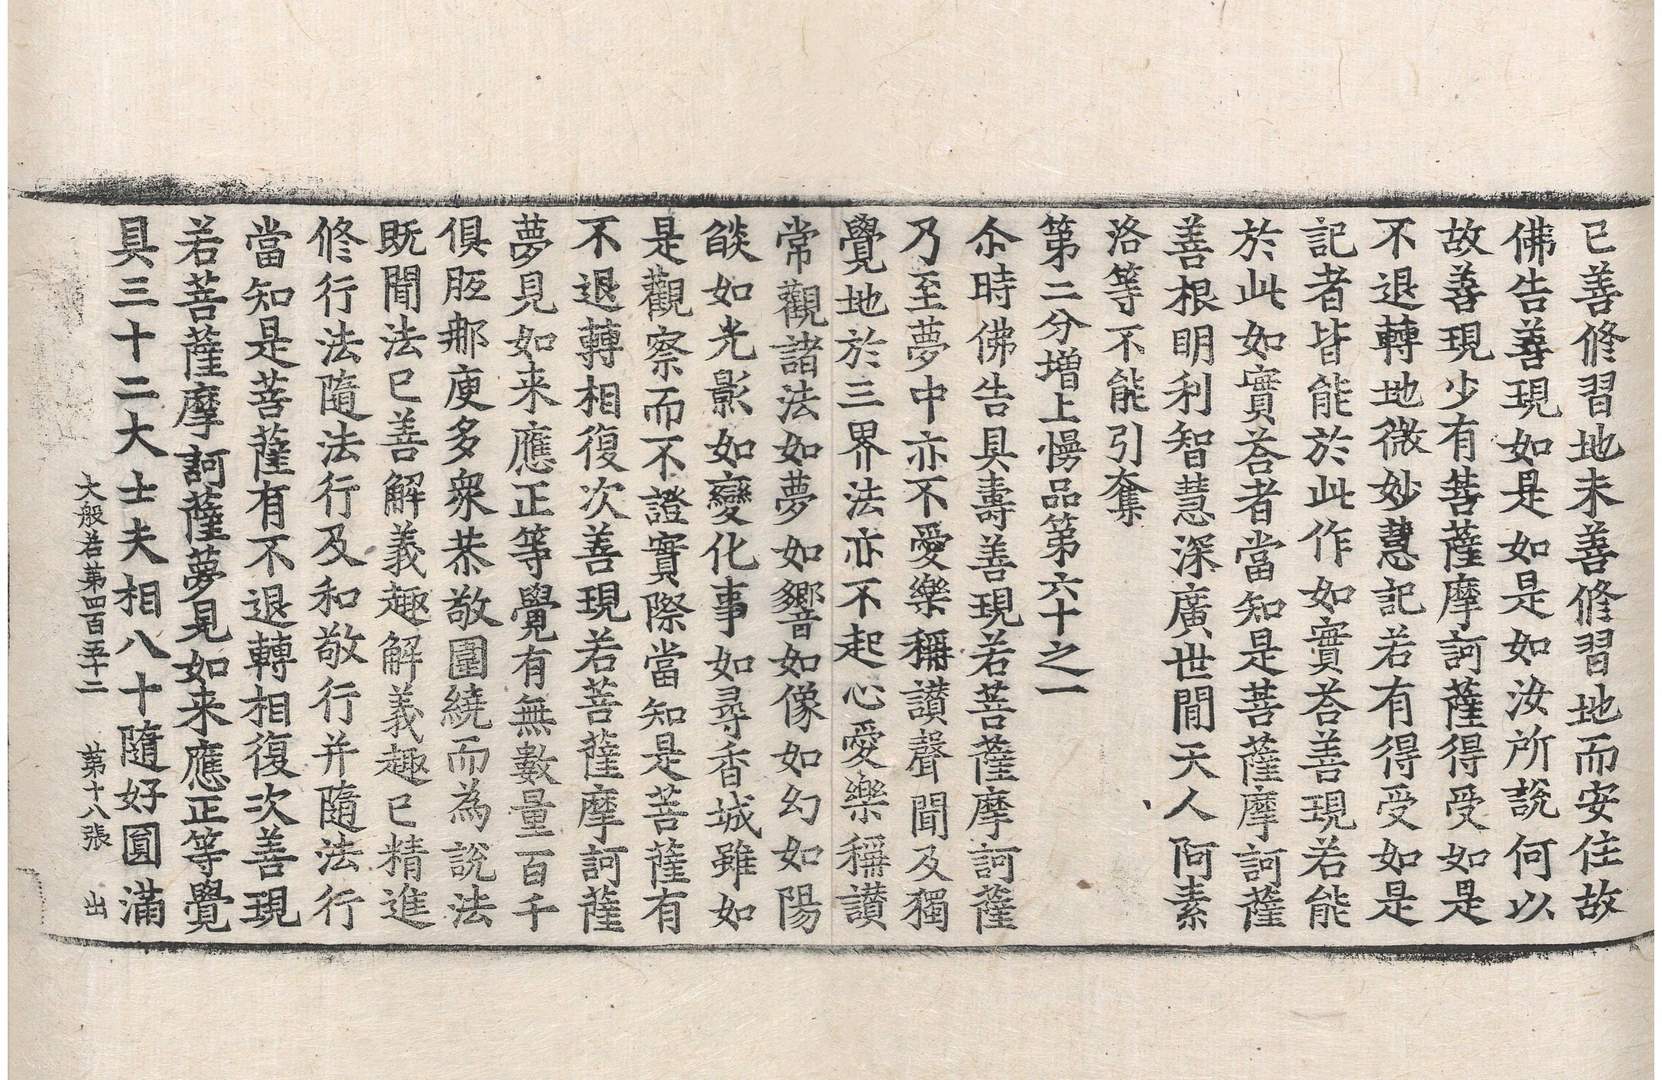 已善修習地未善修習地而安住故
佛告善現如是如是如汝所說何以
故善現少有菩薩摩訶薩得受如是
不退轉地微妙慧記若有得受如是
記者皆能於此作如實荅善現若能
於此如實荅者當知是菩薩摩訶薩
善根明利智慧深廣世閒天人阿素
洛等不能引奪
第二分增上慢品第六十之一
尒時佛告具壽善現若菩薩摩訶薩
乃至夢中亦不愛樂稱讃聲聞及獨
覺地於三界法亦不起心愛樂稱讃
常觀諸法如夢如響如像如幻如陽
燄如光影如變化事如尋香城雖如
是觀察而不證實際當知是菩薩有
不退轉相復次善現若菩薩摩訶薩
夢見如来應正等覺有無數量百千
俱胝那庾多衆恭敬圍繞而為說法
既聞法已善解義趣解義趣已精進
修行法隨法行及和敬行并隨法行
當知是菩薩有不退轉相復次善現
若菩薩摩訶薩夢見如来應正等覺
具三十二大士夫相八十隨好圓滿
大般若第四百五十二 第十八張 出